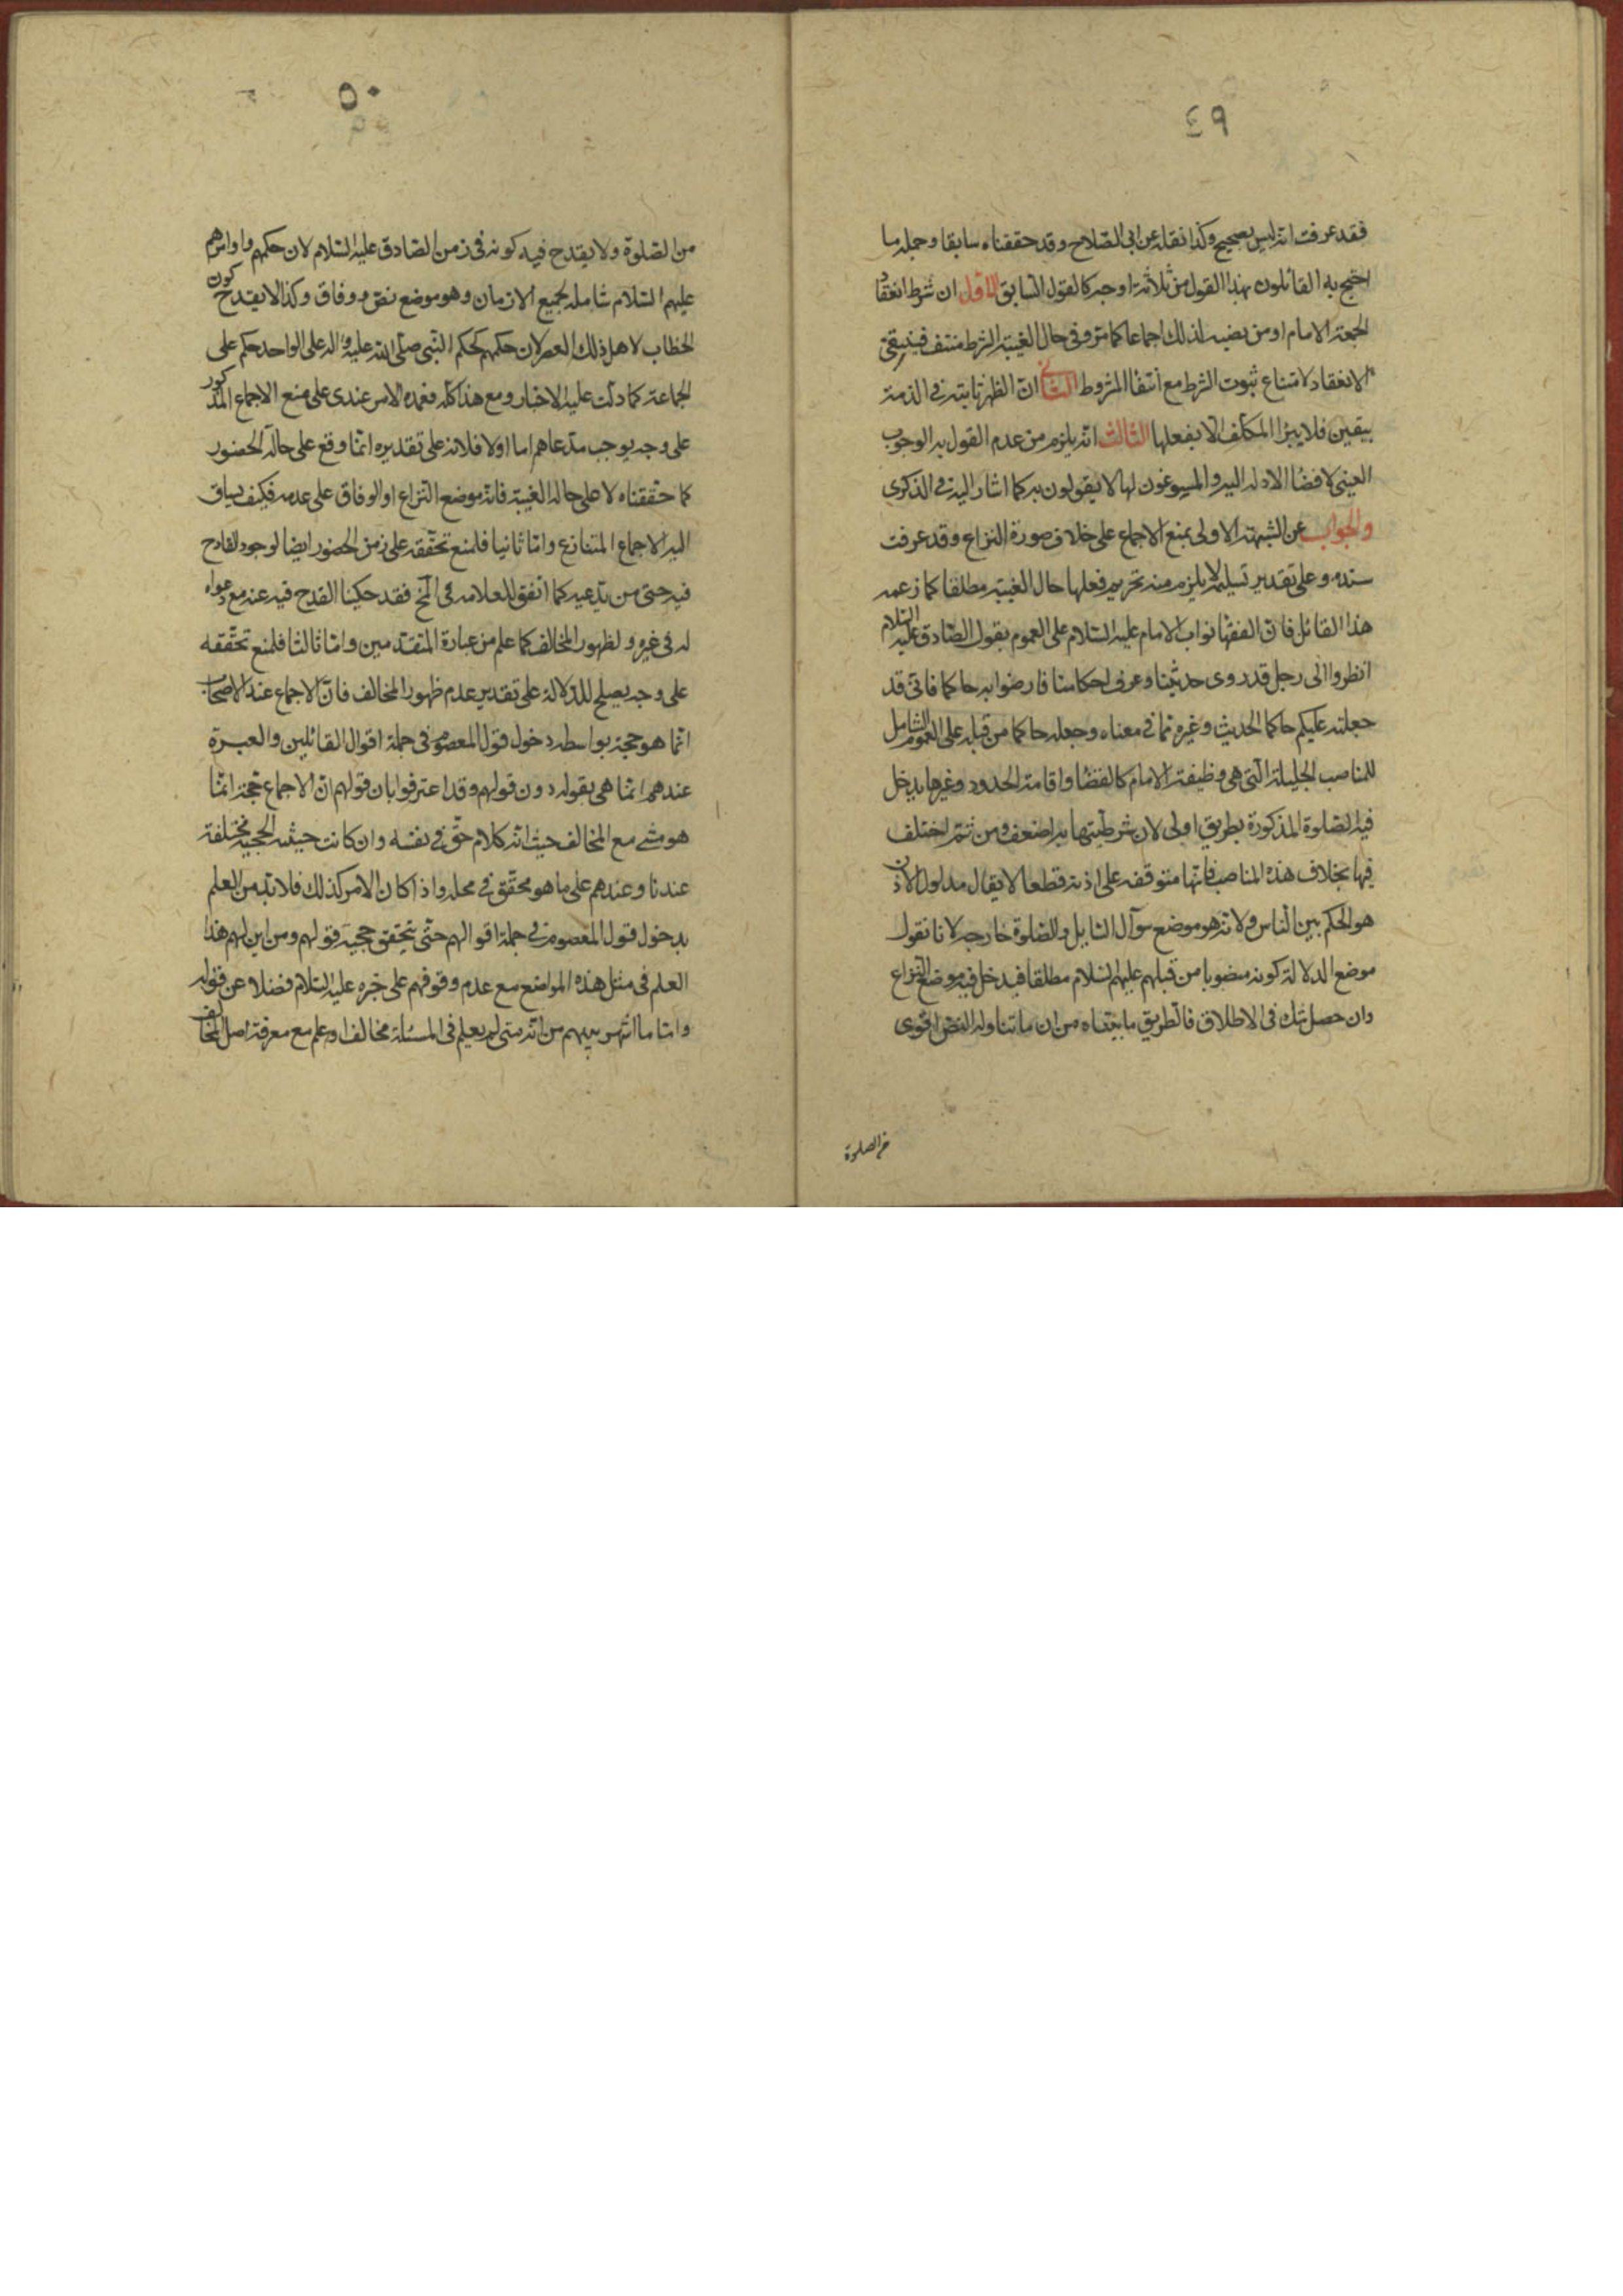 ٤٩
فقد عرفت انه ليس بصحيح وكذا نقله عن ابى الصّلاح وقد حققناه سابقا وجملة ما
احتج به القائلون بهذا القول من ثلاثة اوجه كالقول السابق الاول ان شرط انعقاد
الجمعة الامام او من نصبه لذلك اجماعا كما مرّ وفى حال الغيبة الشرط منتف فينتفى
الانعقاد لامتناع ثبوت الشرط مع انتفا المشروط الثانى انّ الظهر ثابتة فى الذمة
بيقين فلا يبرا المكلّف الا بفعلها الثالث انه يلزم من عدم القول به الوجوب
العينى لافضا الادلة اليه والمسوغون لها لا يقولون به كما اشار اليه فى الذكرى
والجواب عن الشبهة الاولى بمنع الاجماع على خلاف صورة النزاع وقد عرفت
سنده وعلى تقدير تسليمه لا يلزم منه تحريم فعلها حال الغيبة مطلقا كما زعمه
هذا القائل فانّ الفقها نواب الامام عليه السّلام على العموم بقول الصّادق عليه السّلام
انظروا الى رجل قد روى حديثنا وعرف احكامنا فارضوا به حاكما فانّى قد
جعلته عليكم حاكما الحديث وغيره ممّا فى معناه وجعله حاكما من قبله على العموم الشامل
للمناصب الجليلة الّتى هى وظيفة الامام كالقضا واقامة الحدود وغيرها يدخل
فيه الصّلوة المذكورة بطريق اولى لان شرطيّتها به اضعف ومن ثمّ اختلف
فيها بخلاف هذه المناصب فانّها متوقفة على اذنه قطعا لا يقال مدلول الاذن
هو الحكم بين النّاس ولانه هو موضع سوآل السّايل والصّلوة خارجه لانا نقول
موضع الدلالة كونه منصوبا من قبلهم عليهم السّلام مطلقا فيدخل فيه موضع النّزاع
وان حصل شك فى الاطلاق فالطريق ما بيّنّاه من ان ما تناوله النصّ اقوى
من الصلوة
٥٠
من الصّلوة ولا يقدح فيه كونه فى زمن الصّادق عليه السّلام لان حكمهم واوامرهم
عليهم السّلام شاملة لجميع الازمان وهو موضع نصّ ووفاق وكذا لا يقدح كون
الخطاب لاهل ذلك العصر لان حكمهم كحكم النّبى صلّى الله عليه واله على الواحد حكم على
الجماعة كما دلّت عليه الاخبار ومع هذا كلّه فعمدة الامر عندى على منع الاجماع المذكور
على وجه يوجب مدّعاهم اما اولا فلانه على تقديره انّما وقع على حالة الحضور
كما حقّقناه لا على حالة الغيبة فانّه موضع النّزاع او الوفاق على عدمه فكيف يساق
اليه الاجماع المتنازع وامّا ثانيا فلمنع تحقّقه على زمن الحضور ايضا لوجود القادح
فيه حتى من يدّعيه كما اتّفق للعلامه فى فقد حكينا القدح فيه عنه مع دعواه
له فى غيره ولظهور المخالف كما علم من عبارة المتقدّمين وامّا ثالثا فلمنع تحقّقه
على وجه يصلح للدّلالة على تقدير عدم ظهور المخالف فانّ الاجماع عند الاصحاب
انّما هو حجة بواسطة دخول قول المعصوم فى جملة اقوال القائلين والعبرة
عندهم انّما هى بقوله دون قولهم وقد اعترفوا بان قولهم انّ الاجماع حجّة انّما
هو مشى مع المخالف حيث انّه كلام حقّ فى نفسه وان كانت حيثية الحجّية مختلفة
عندنا وعندهم على ما هو محقّق فى محله واذا كان الامر كذلك فلا بّد من العلم
بدخول قول المعصوم فى جملة اقوالهم حتّى يتحقق حجيّة قولهم ومن اين لهم هذا
العلم فى مثل هذه المواضع مع عدم وقوفهم على خبره عليه السّلام فضلا عن قوله
وامّا ما اشتهر بينهم من انّه متى لم يعلم فى المسئلة مخالف او علم مع معرفة اصل المخالف